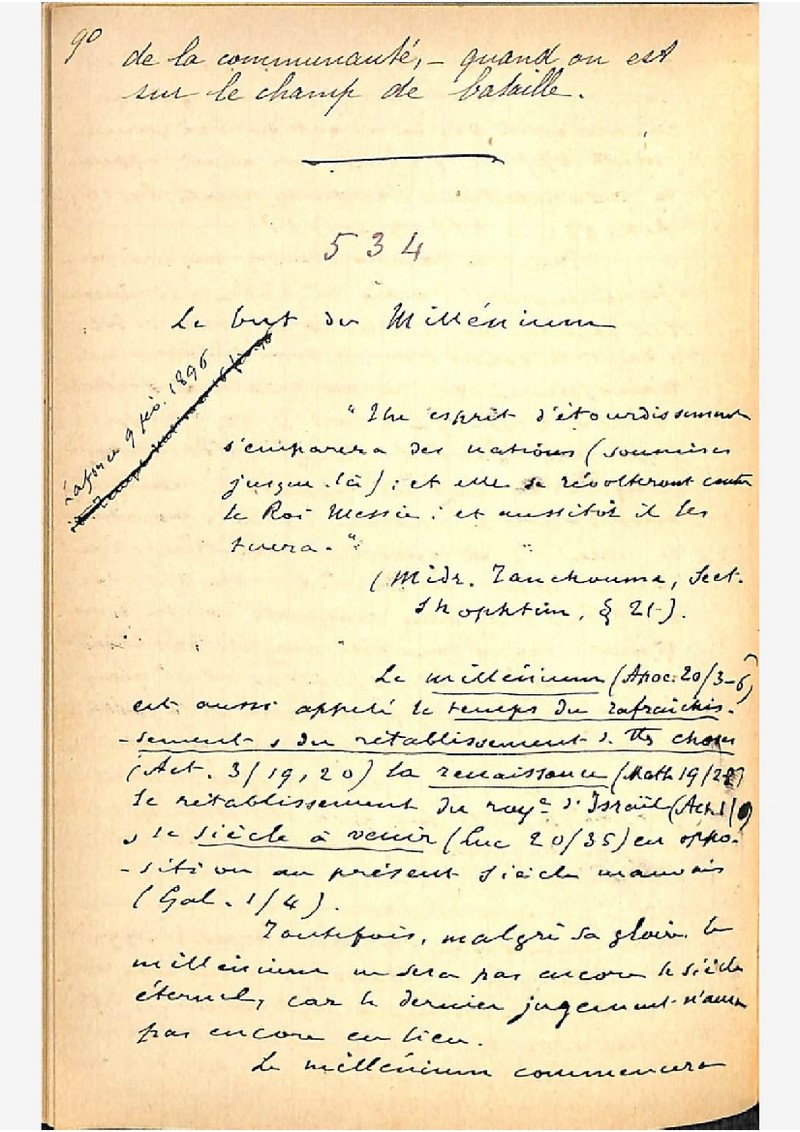 90
de la communauté, – quand on est
sur le champ de bataille.
534
Le but du Millénium
Laforce 9 fév. 1896
"Un esprit d'étourdissement
s'emparera des nations (soumises
jusque-là) ; et elles se révolteront contre
le Roi Messie ; et aussitôt il les
tuera."
(Midr. Tanchouma, Sect.
Shophtim, § 21).
Le millénium (Apoc. 20/3-6)
est aussi appelé le temps du rafraîchis-
-sement, du rétablissement d. tts choses
(Act. 3/19, 20) la renaissance (Math 19/28)
le rétablissement du roye d'Israël (Act. 1/6)
, le siècle à venir (Luc 20/35) en oppo-
-sition au présent siècle mauvais
(Gal. 1/4).
Toutefois, malgré sa gloire, le
millénium ne sera pas encore le siècle
éternel, car le dernier jugement n'aura
pas encore eu lieu.
Le millénium commencera